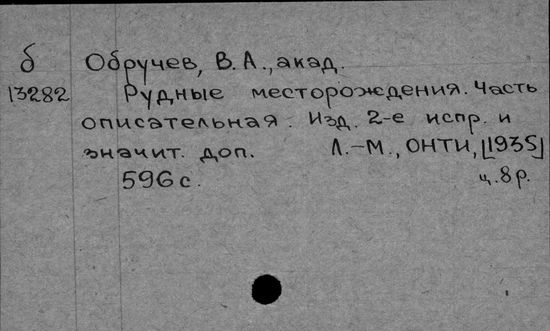 б Обручев, В. А., акад.
13282 Рудные месторождения. Часть
описательная. Изд. 2-е испр. и
значит. доп. Л.-М., ОНТИ, [1935]
596 с. ц. 8 р.